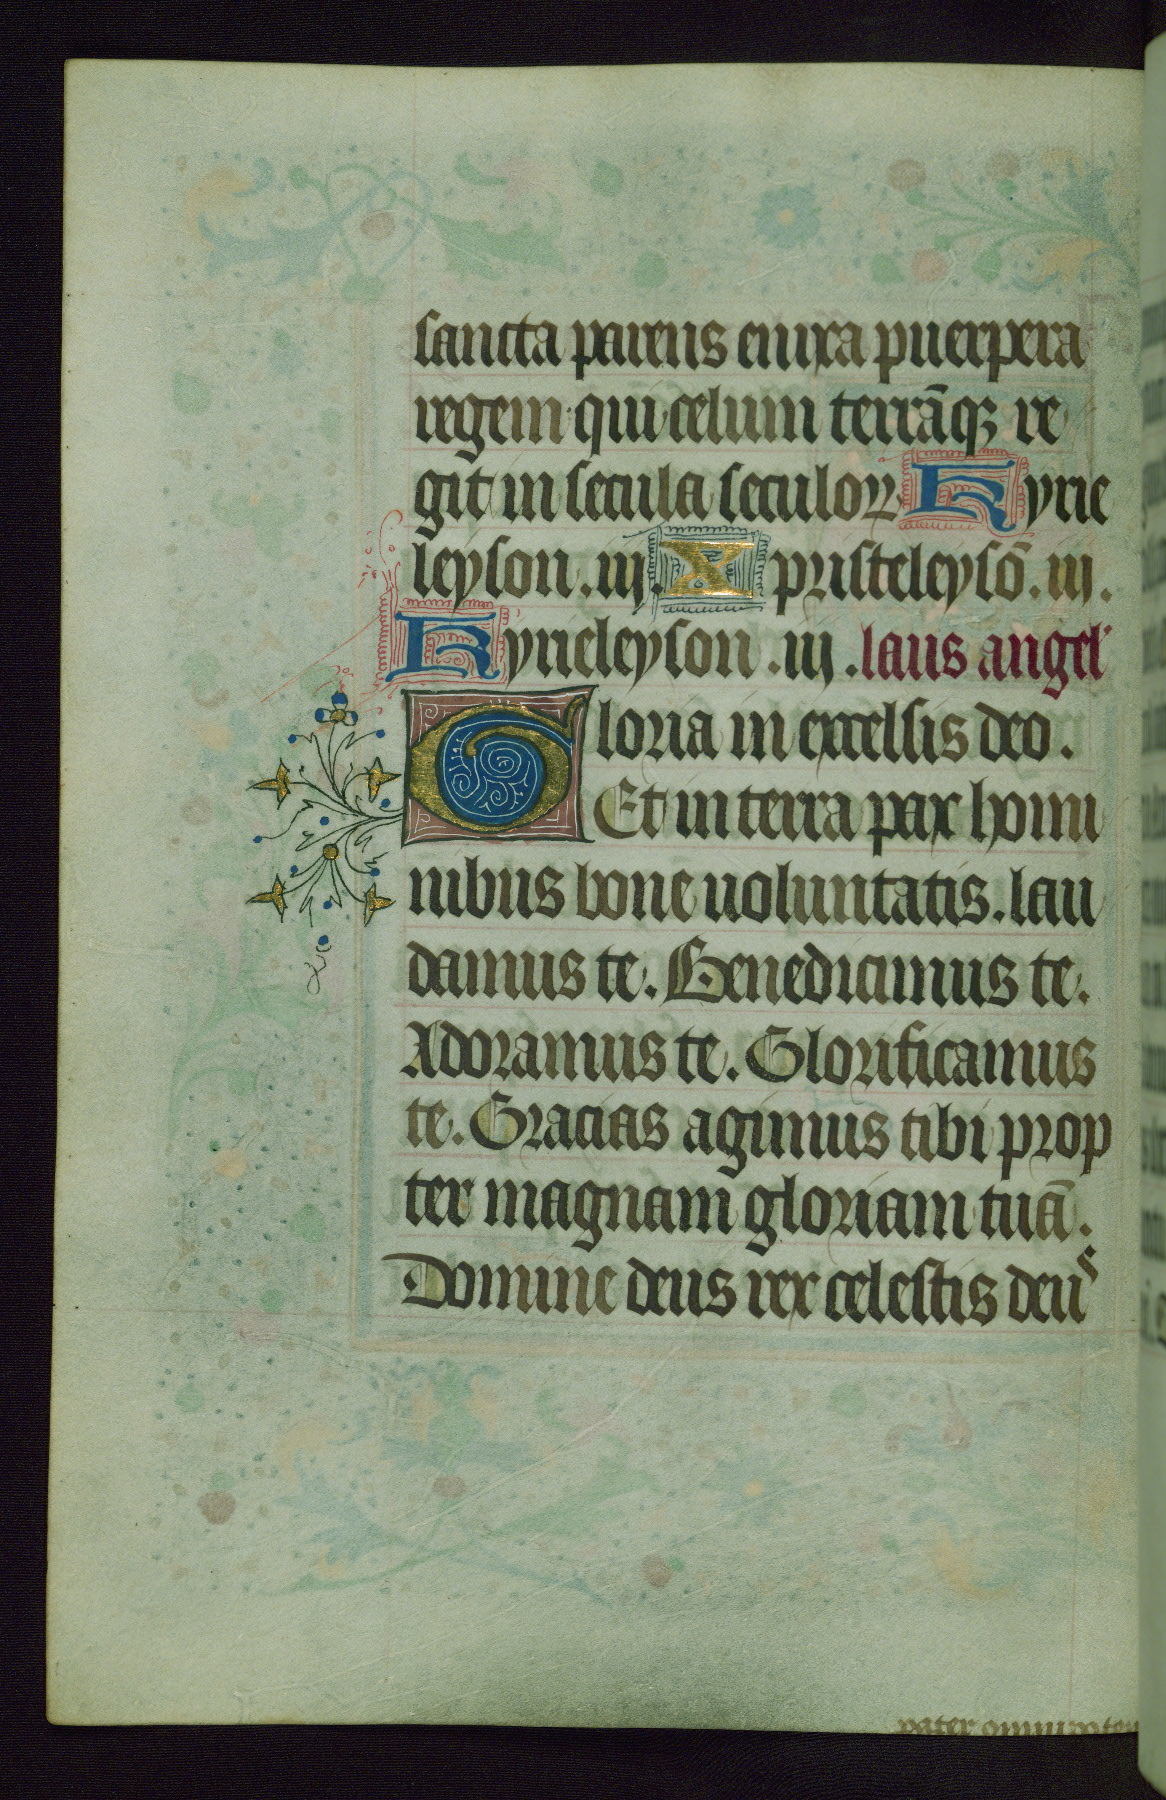 sancta parens enixa puerpera
regem qui celum terrāqꝫ re
git in secula seculoꝝ Kyrie
leyson .iij. Xpristeleysō .iij.
Kyrieleyson .iij. laus angel'
Gloria in excelsis deo.
Et in terra pax homi
nibus bone uoluntatis. lau
damus te. Benedicimus te.
Adoramus te. Glorificamus
te. Gracias agimus tibi prop
ter magnam gloriam tuā.
Domine deus rex celestis deus
pater omnipoten